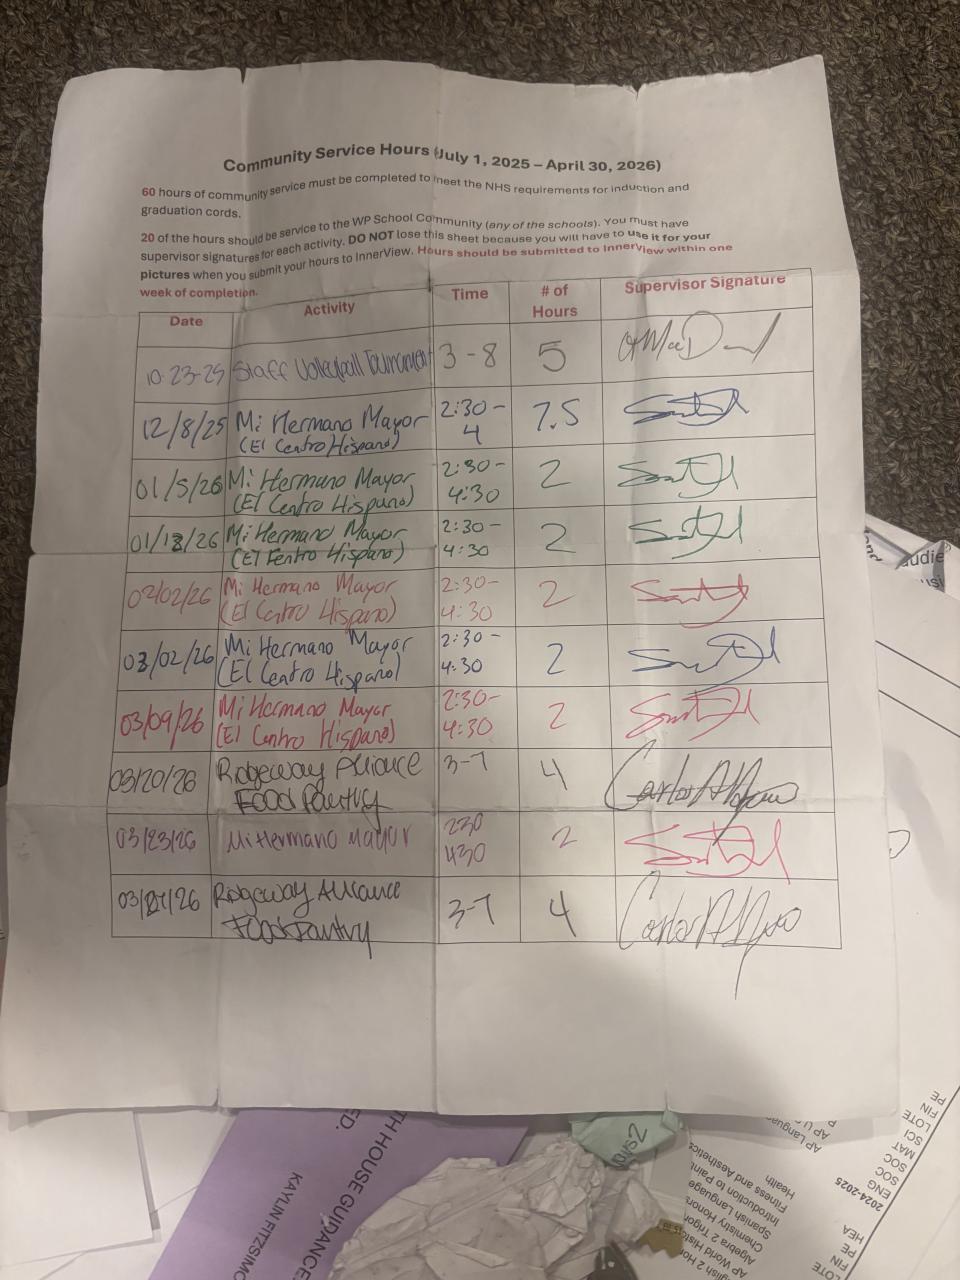 Community Service Hours (July 1, 2025 – April 30, 2026)
60 hours of community service must be completed to meet the NHS requirements for induction and
graduation cords.
20 of the hours should be service to the WP School Community (any of the schools). You must have
supervisor signatures for each activity. DO NOT lose this sheet because you will have to use it for your
pictures when you submit your hours to InnerView. Hours should be submitted to InnerView within one
week of completion.
Date Activity Time # of Hours Supervisor Signature
10-23-25 Staff Volleyball Tournament 3-8 5
12/8/25 Mi Hermano Mayor (El Centro Hispano) 2:30-4 1.5
01/5/26 Mi Hermano Mayor (El Centro Hispano) 2:30-4:30 2
01/12/26 Mi Hermano Mayor (El Centro Hispano) 2:30-4:30 2
02/02/26 Mi Hermano Mayor (El Centro Hispano) 2:30-4:30 2
03/02/26 Mi Hermano Mayor (El Centro Hispano) 2:30-4:30 2
03/09/26 Mi Hermano Mayor (El Centro Hispano) 2:30-4:30 2
03/20/26 Ridgeway Alliance Food Pantry 3-7 4
03/23/26 Mi Hermano Mayor 230 430 2
03/27/26 Ridgeway Alliance Food Pantry 3-7 4
TH HOUSE GUIDANCE
ED.
KAYLIN FITZSIM
2024-2025
ENG
SOC
SOC
MAT
SCI
LOTE
FIN
PE
AP Langua
Health
Fitness and Aesthetics
Introduction to Paint
Spanish Language
Chemistry Honors
Algebra 2 Trigon
AP World Histo
glish 2 Hon
HEA
PE
FIN
LOTE
udie